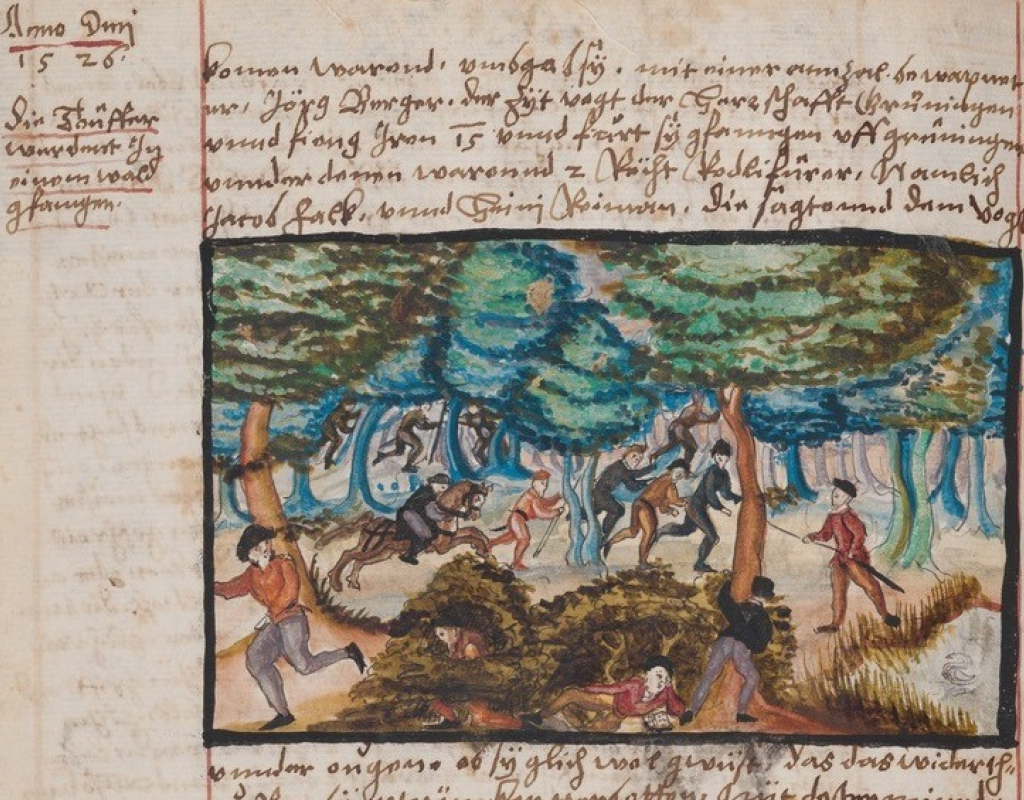 Anno Dmj
1526.
die Töüffer
wardent In
einem wald
gfangen.
komen warend, umbgab sÿ, mit einer anzal bewapnet
er, Jörg Berger, der zÿt vogt der Herrschafft Grüningen
unnd fieng Iren 15 unnd fürt sÿ gfanngen uff grüningen
unnder denen warennd 2 Röcht Rodlifürer, Namlich
Jacob Falk, unnd Heini Reiman, die sagtennd dem vogt
unnder ougen, ob sÿ glich wol gwüst, das das widerth-